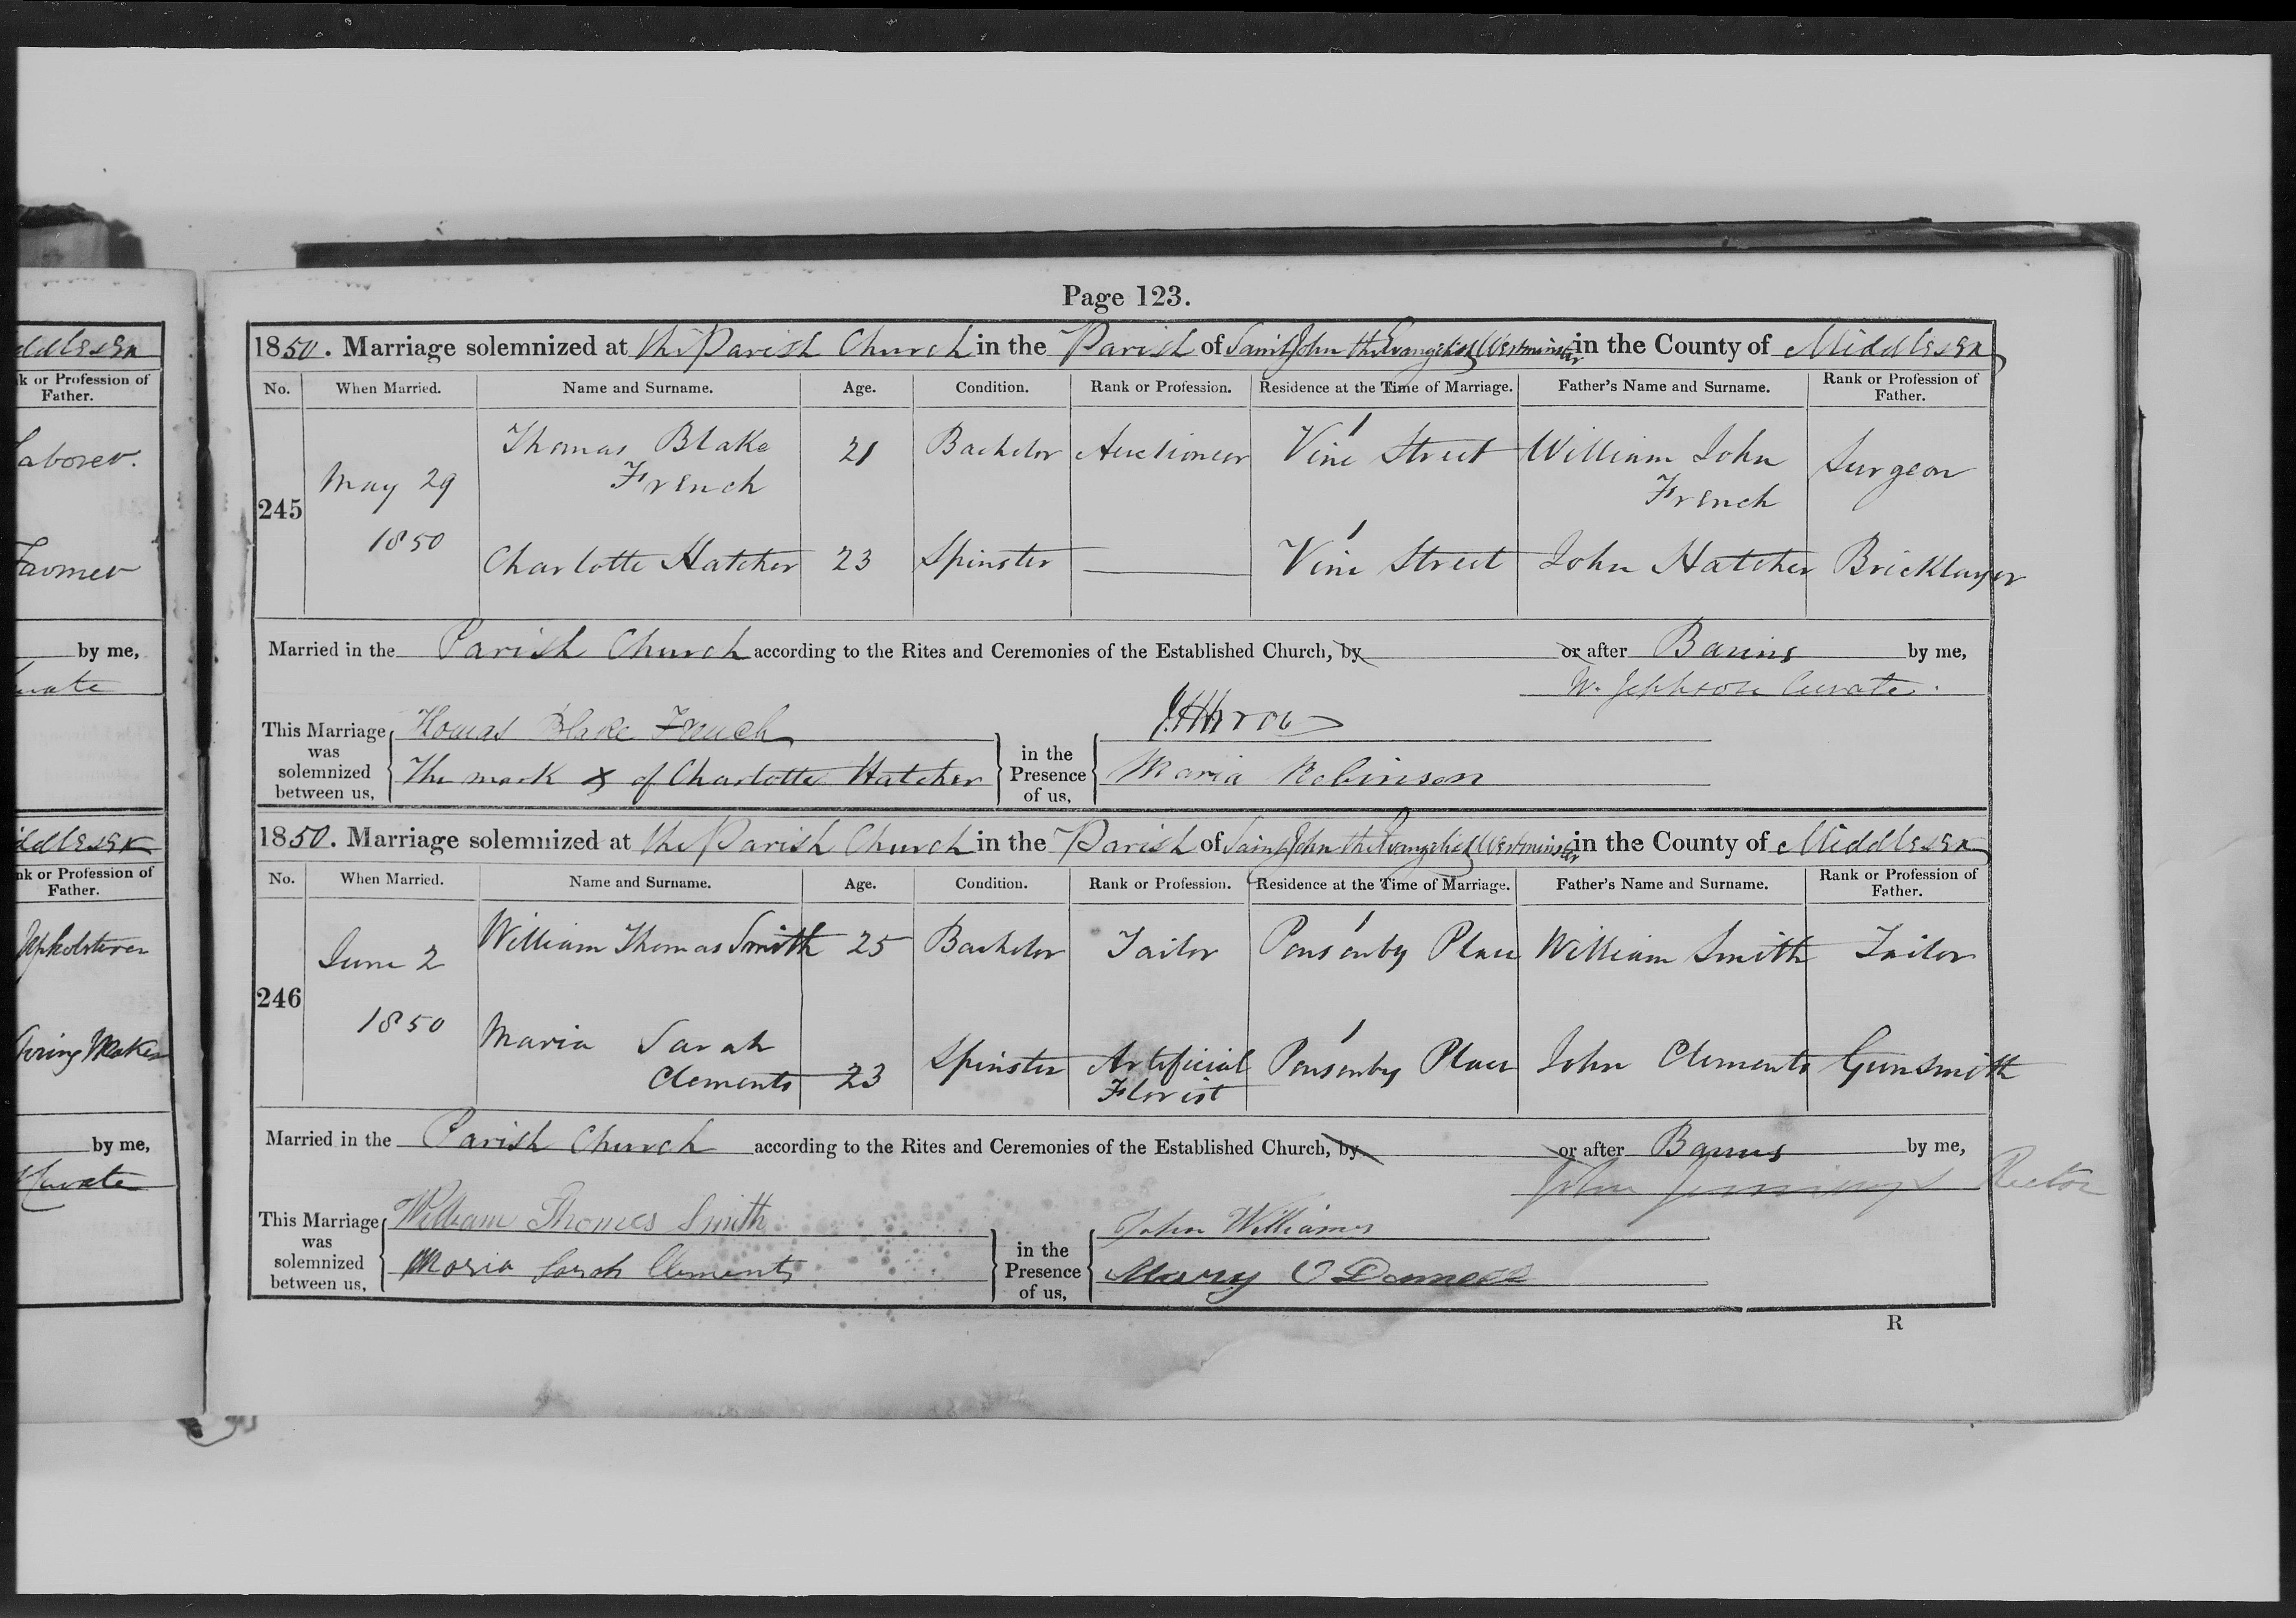 Page 123.
ddlesex
1850. Marriage solemnized at the Parish Church in the Parish of Saint John the Evangelist Westminster in the County of Middlesex
k or Profession of
Father.
No. When Married. Name and Surname. Age. Condition. Rank or Profession. Residence at the Time of Marriage. Father's Name and Surname. Rank or Profession of Father.
Laborer.
245 May 29 1850 Thomas Blake French 21 Bachelor Auctioneer Vine Street William John French Surgeon
Farmer
Charlotte Hatcher 23 Spinster Vine Street John Hatcher Bricklayer
by me,
Married in the Parish Church according to the Rites and Ceremonies of the Established Church, by or after Banns by me,
urate
W. Jephson Curate.
This Marriage was solemnized between us, Thomas Blake French in the Presence of us,
The mark x of Charlotte Hatcher Maria Robinson
iddlesex
1850. Marriage solemnized at the Parish Church in the Parish of Saint John the Evangelist Westminster in the County of Middlesex
nk or Profession of
Father.
No. When Married. Name and Surname. Age. Condition. Rank or Profession. Residence at the Time of Marriage. Father's Name and Surname. Rank or Profession of Father.
Upholsterer
246 June 2 1850 William Thomas Smith 25 Bachelor Tailor Ponsonby Place William Smith Tailor
Maker
Maria Sarah Clements 23 Spinster Artificial Florist Ponsonby Place John Clements Gunsmith
by me,
Married in the Parish Church according to the Rites and Ceremonies of the Established Church, by or after Banns by me,
Curate
John Jennings Rector
This Marriage was solemnized between us, William Thomas Smith in the Presence of us, John Williams
Maria Sarah Clements Mary O Donnell
R